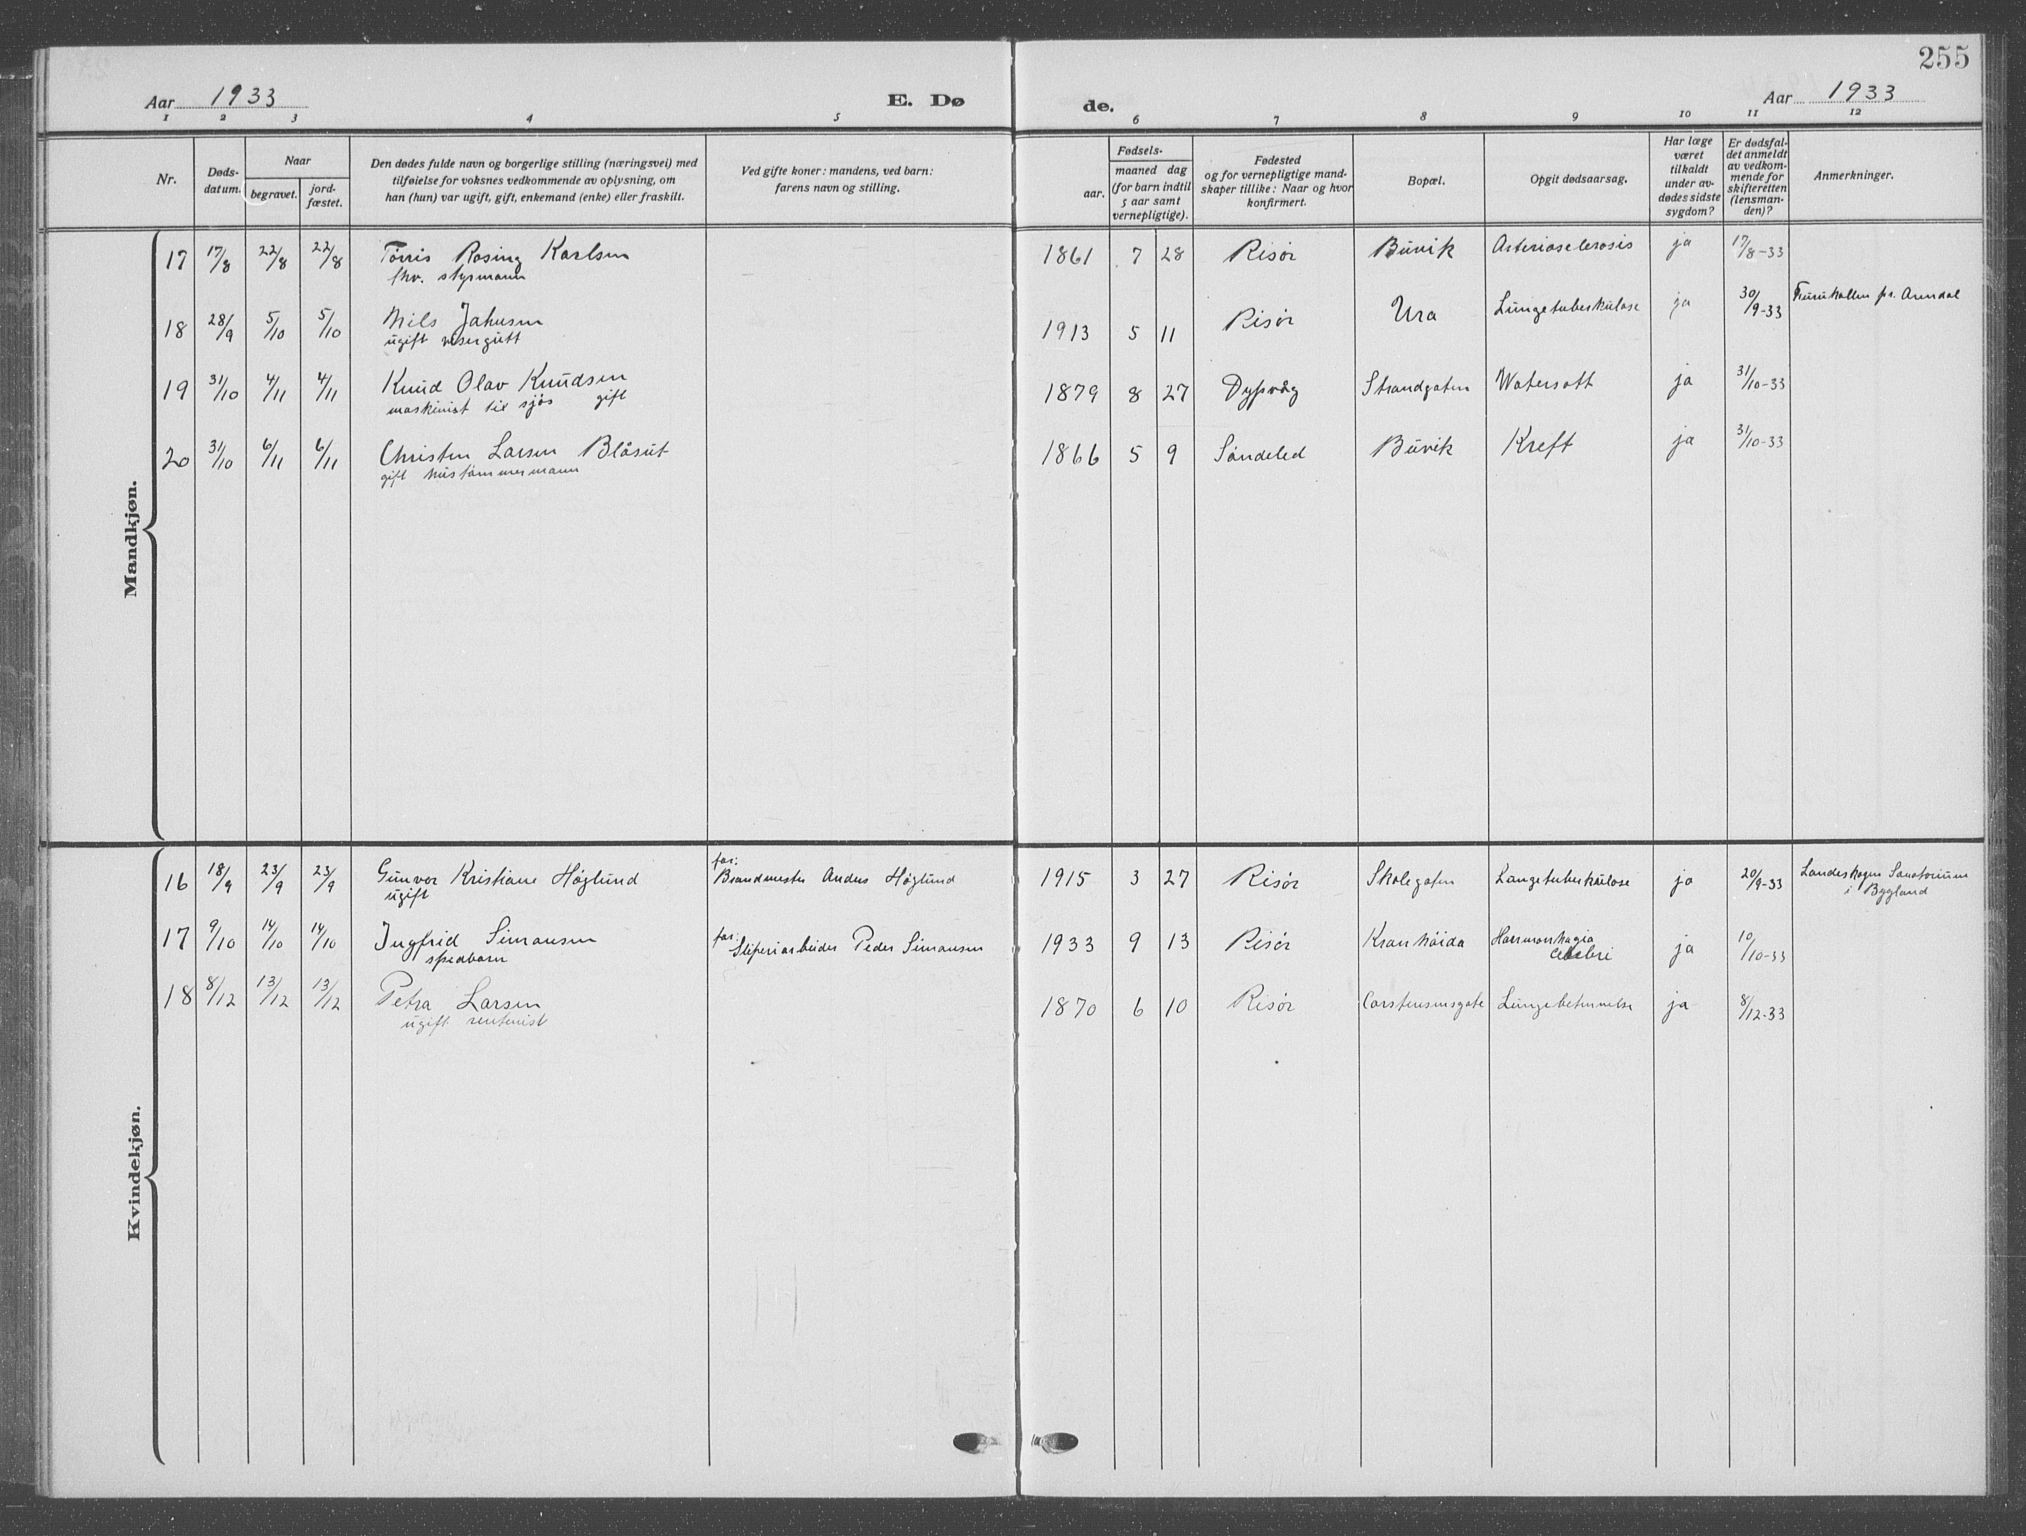 255
Aar 1933
E. Dø
de.
Aar 1933
1 2 3 4 5 6 7 8 9 10 11 12
Nr.
Døds-
datum.
Naar
begravet.
jord-
fæstet.
Den dødes fulde navn og borgerlige stilling (næringsvei) med
tilføielse for voksnes vedkommende av oplysning, om
han (hun) var ugift, gift, enkemand (enke) eller fraskilt.
Ved gifte koner: mandens, ved barn:
farens navn og stilling.
Fødsels-
aar.
maaned dag
(for barn indtil
5 aar samt
vernepligtige).
Fødested
og for vernepligtige mand-
skaper tillike: Naar og hvor
konfirmert.
Bopæl.
Opgit dødsaarsag.
Har læge
været
tilkaldt
under av-
dødes sidste
sygdom?
Er dødsfal-
det anmeldt
av vedkom-
mende for
skifteretten
(lensman-
den)?
Anmerkninger.
Mandkjøn.
17 17/8 22/8 22/8 Tørris Rosing Karlsen 1861 7 28 Risør Buvik Arteriosclerosis ja 17/8-33
fhv. styrmann
18 28/9 5/10 5/10 Nils 1913 5 11 Risør Ura Lungetuberkulose ja 30/9-33 Furukollen pr. Arendal
ugift visergutt
19 31/10 4/11 4/11 Knud Olav Knudsen 1879 8 27 Dypvåg Strandgaten Watersott ja 31/10-33
maskinist til sjøs gift
20 31/10 6/11 6/11 Christen Larsen Blåsut 1866 5 9 Søndeled Buvik Kreft ja 31/10-33
gift hustømmermann
Kvindekjøn.
16 18/9 23/9 23/9 Gunvor Kristiane Høglund far: Brandmester Anders Høglund 1915 3 27 Risør Skolegaten Lungetuberkulose ja 20/9-33 Landeskogen Sanatorium
ugift i Bygland
17 9/10 14/10 14/10 Ingfrid Simonsen far: Sliperiarbeider Peder Simonsen 1933 9 13 Risør Kranheida ja 10/10-33
spedbarn
18 8/12 13/12 13/12 Petra Larsen 1870 6 10 Risør Carstensensgate Lungebetennelse ja 8/12-33
ugift rentenist